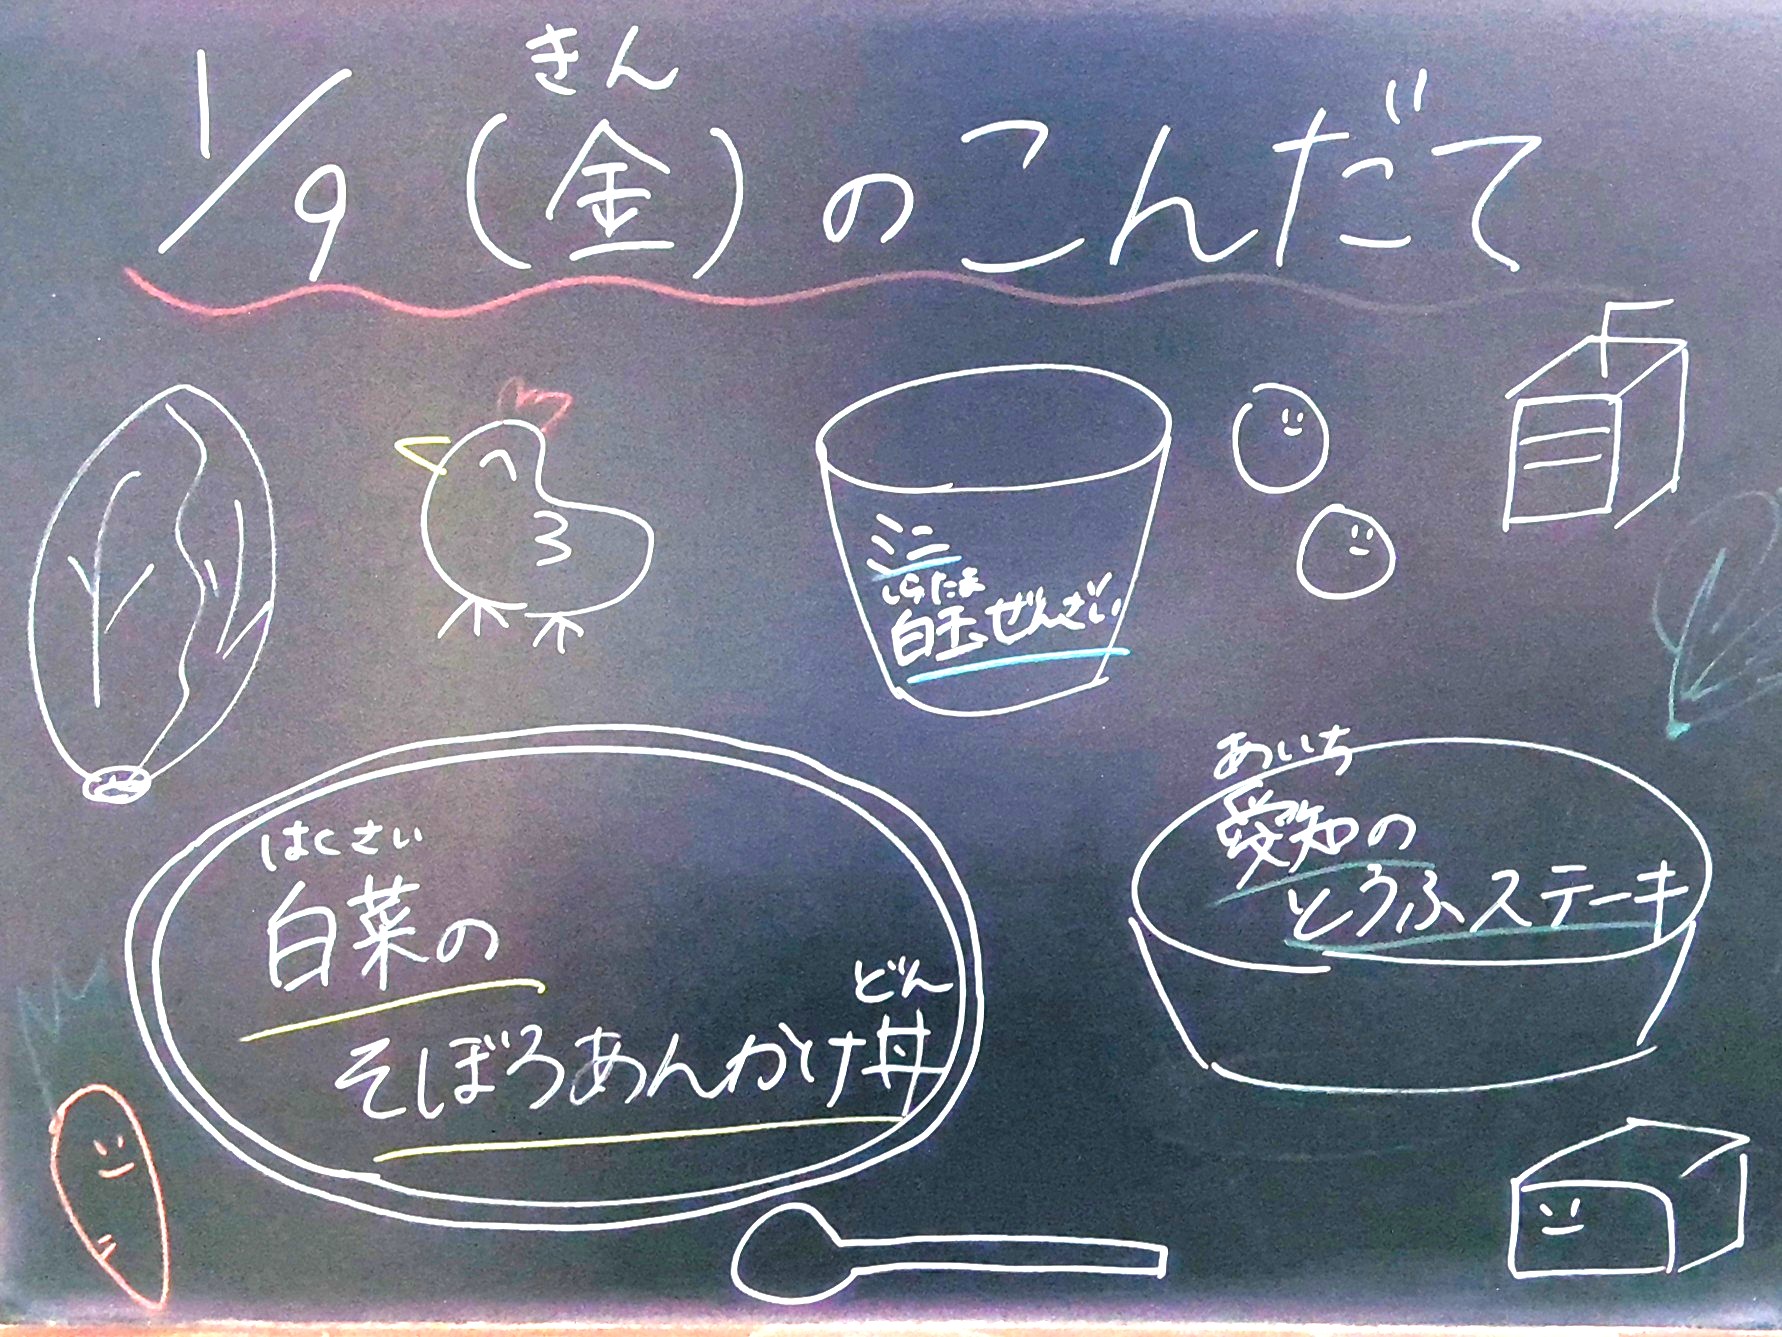 きん
1/9(金)のこんだて
ミニ
しらたま
白玉ぜんざい
あいち
愛知の
とうふステーキ
はくさい
白菜の
どん
そぼろあんかけ丼